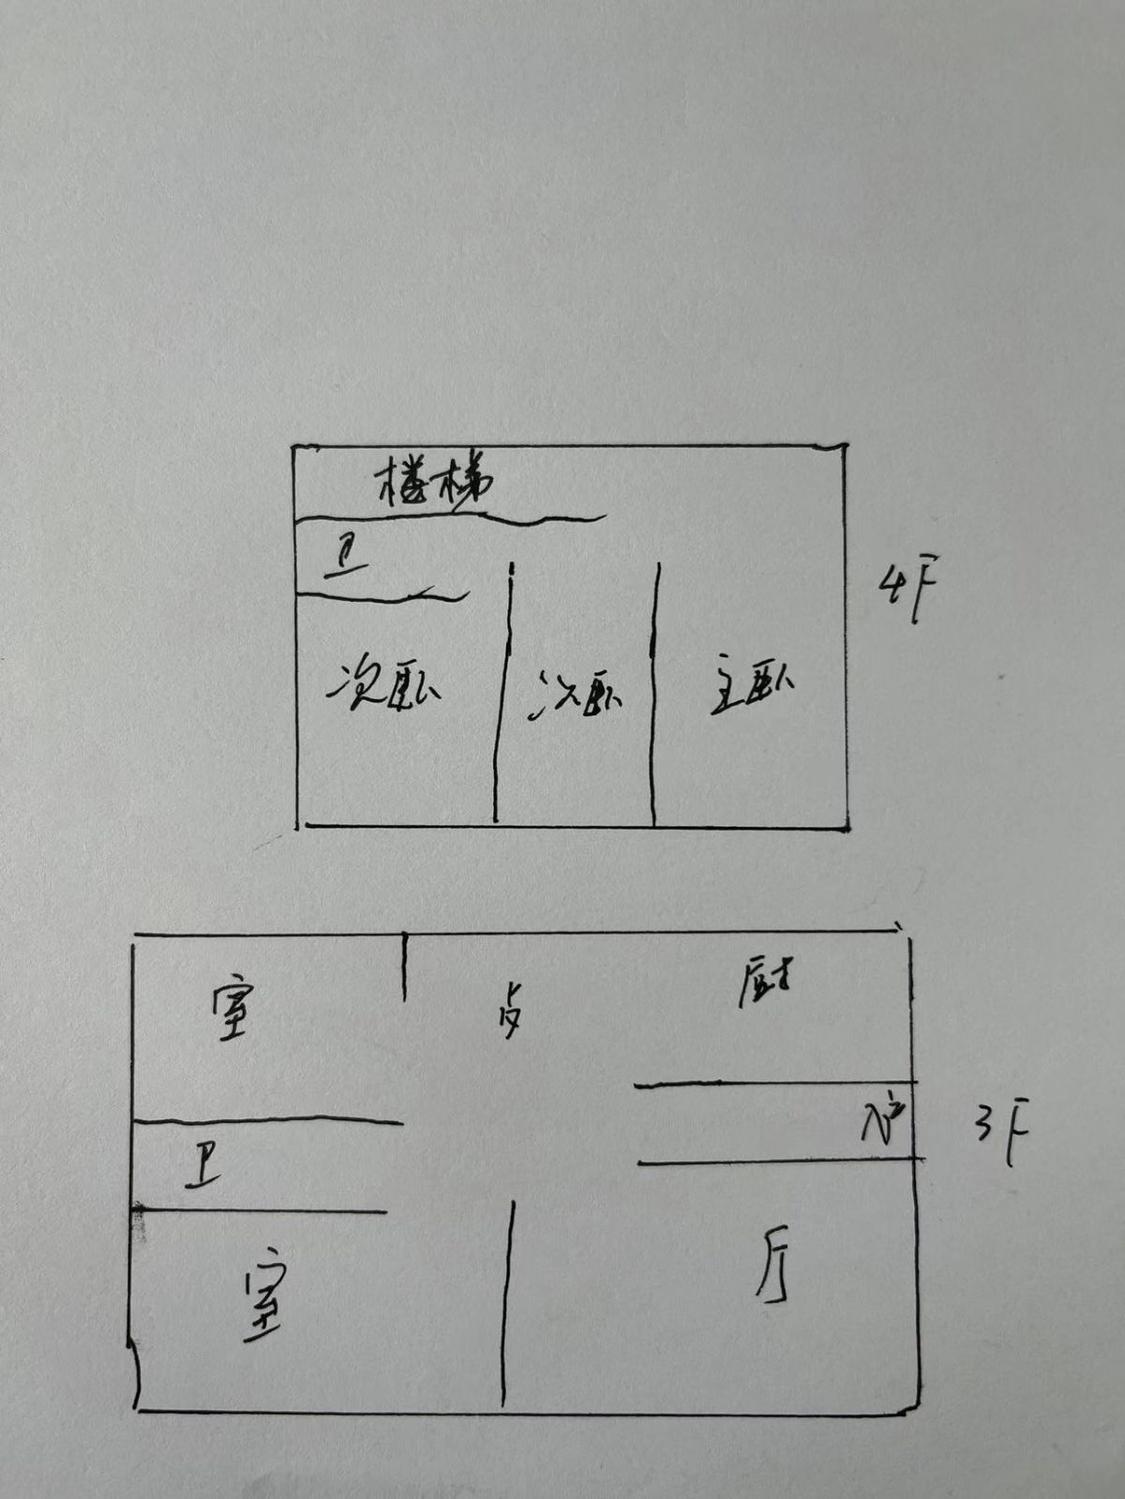 楼梯
卫
4F
次卧 次卧 主卧
室 厨
入户
3F
卫
厅
室